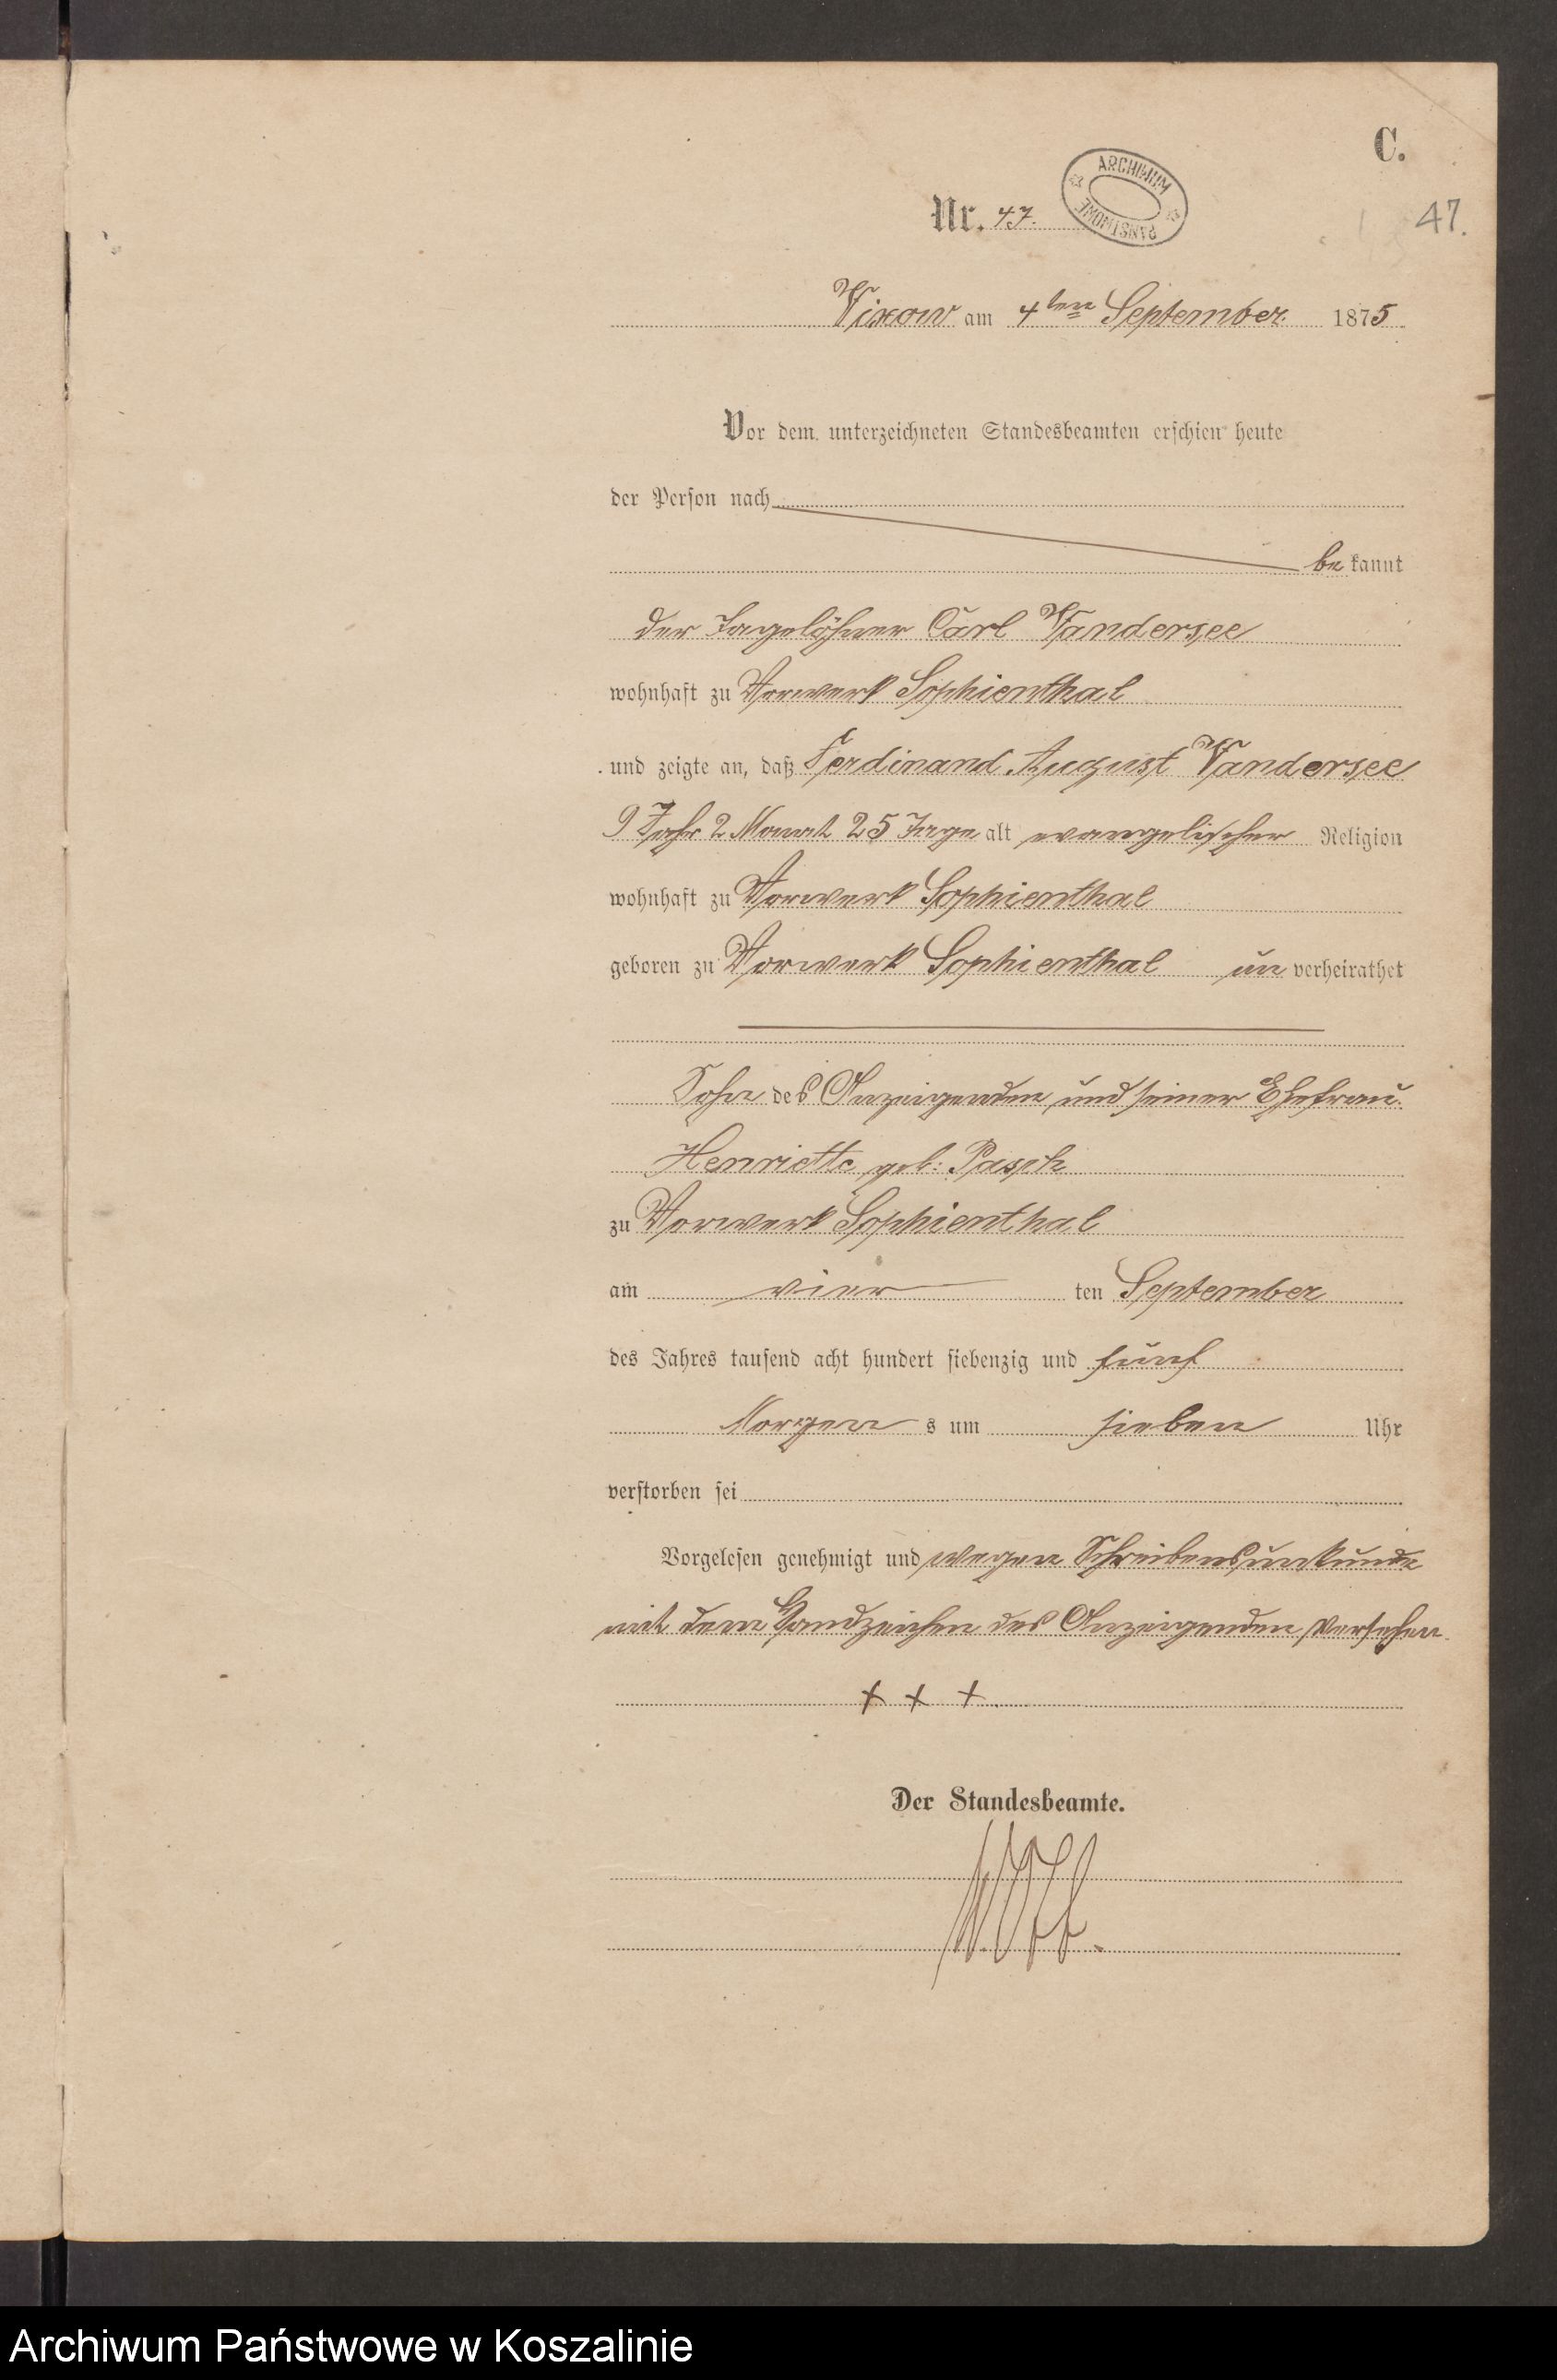 C.
Nr. 47.
ARCHIWUM PAŃSTWOWE
47.
Vixow am 4ten September 1875
Vor dem unterzeichneten Standesbeamten erschien heute
der Person nach
be kannt
der Tagelöhner Carl Vandersee
wohnhaft zu Vorwerk Sophienthal
und zeigte an, daß Ferdinand August Vandersee
9 Jahr 2 Monat 25 Tage alt evangelischer Religion
wohnhaft zu Vorwerk Sophienthal
geboren zu Vorwerk Sophienthal un verheirathet
Sohn des Anzeigenden und seiner Ehefrau
Henriette geb: Pasch
zu Vorwerk Sophienthal
am vier ten September
des Jahres tausend acht hundert siebenzig und fünf
Morgen s um sieben Uhr
verstorben sei
Vorgelesen genehmigt und wegen Schreibensunkunde
mit dem Handzeichen des Anzeigenden versehen.
+ + +.
Der Standesbeamte.
Archiwum Państwowe w Koszalinie